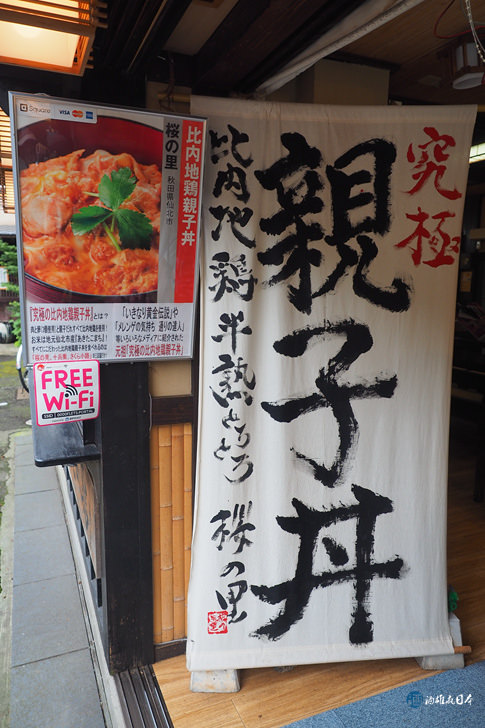 Square VISA
比内地鶏親子丼
桜の里
秋田県仙北市
『究極の比内地鶏親子丼』とは?
「いきなり黄金伝説」や
「メレンゲの気持ち 通りの達人」
元祖「究極の比内地鶏親子丼」
FREE
Wi-Fi
究極
親子丼
比内地鶏半熟とろとろ
桜の里
酒雄在日本